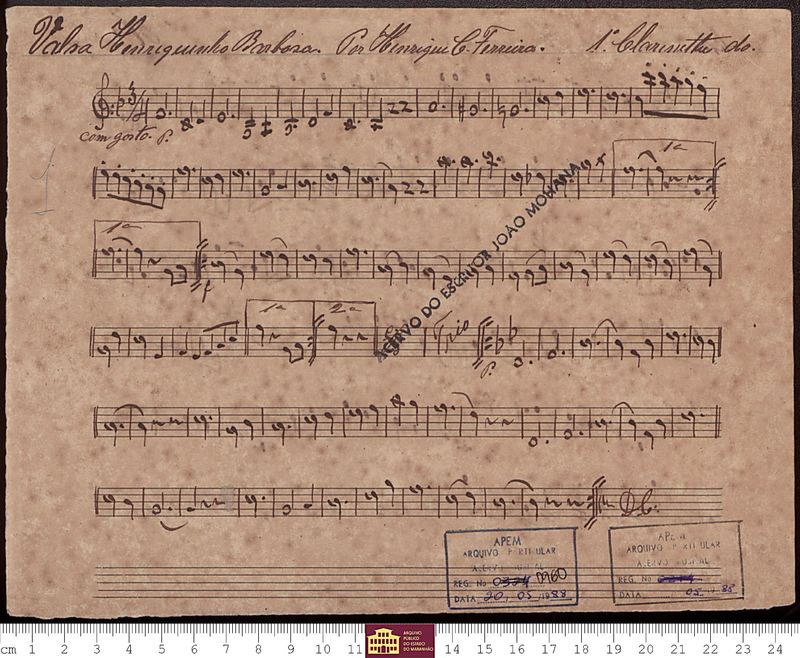 Valsa Henriquinho Barbosa. Por Henrique C. Ferreira. 1ª Clarinetta do.
3/4
com gosto. P.
22
1
22
1ª
1ª
f
1ª 2ª
Trio
P.
D.C.
ACERVO DO ESCRITOR JOÃO MOHANA
APEM
ARQUIVO P RTICULAR
ACERVO MUSICAL
REG. No 0324 0960
DATA 20, 05, 1988
APEM
ARQUIVO P RTICULAR
ACERVO MUSICAL
REG. No
DATA 05 1988
cm 1 2 3 4 5 6 7 8 9 10 11 14 15 16 17 18 19 20 21 22 23 24
ARQUIVO
PÚBLICO
DO ESTADO
DO MARANHÃO